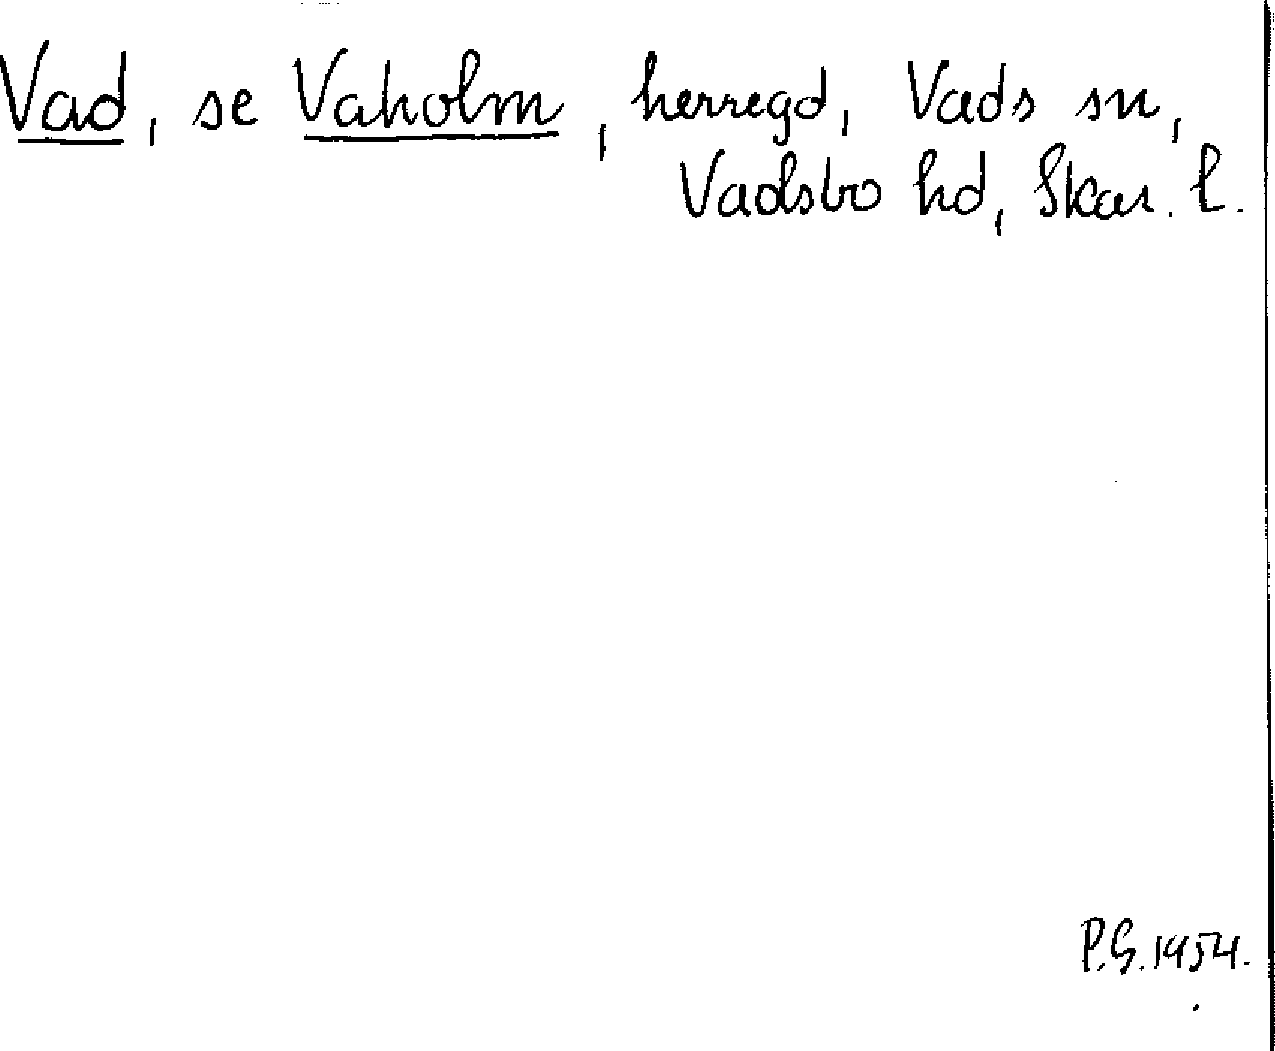 Vad, se Vaholm, herregd, Vads sn,
Vadsbo hd, Skar. l.
P.G. 1954.